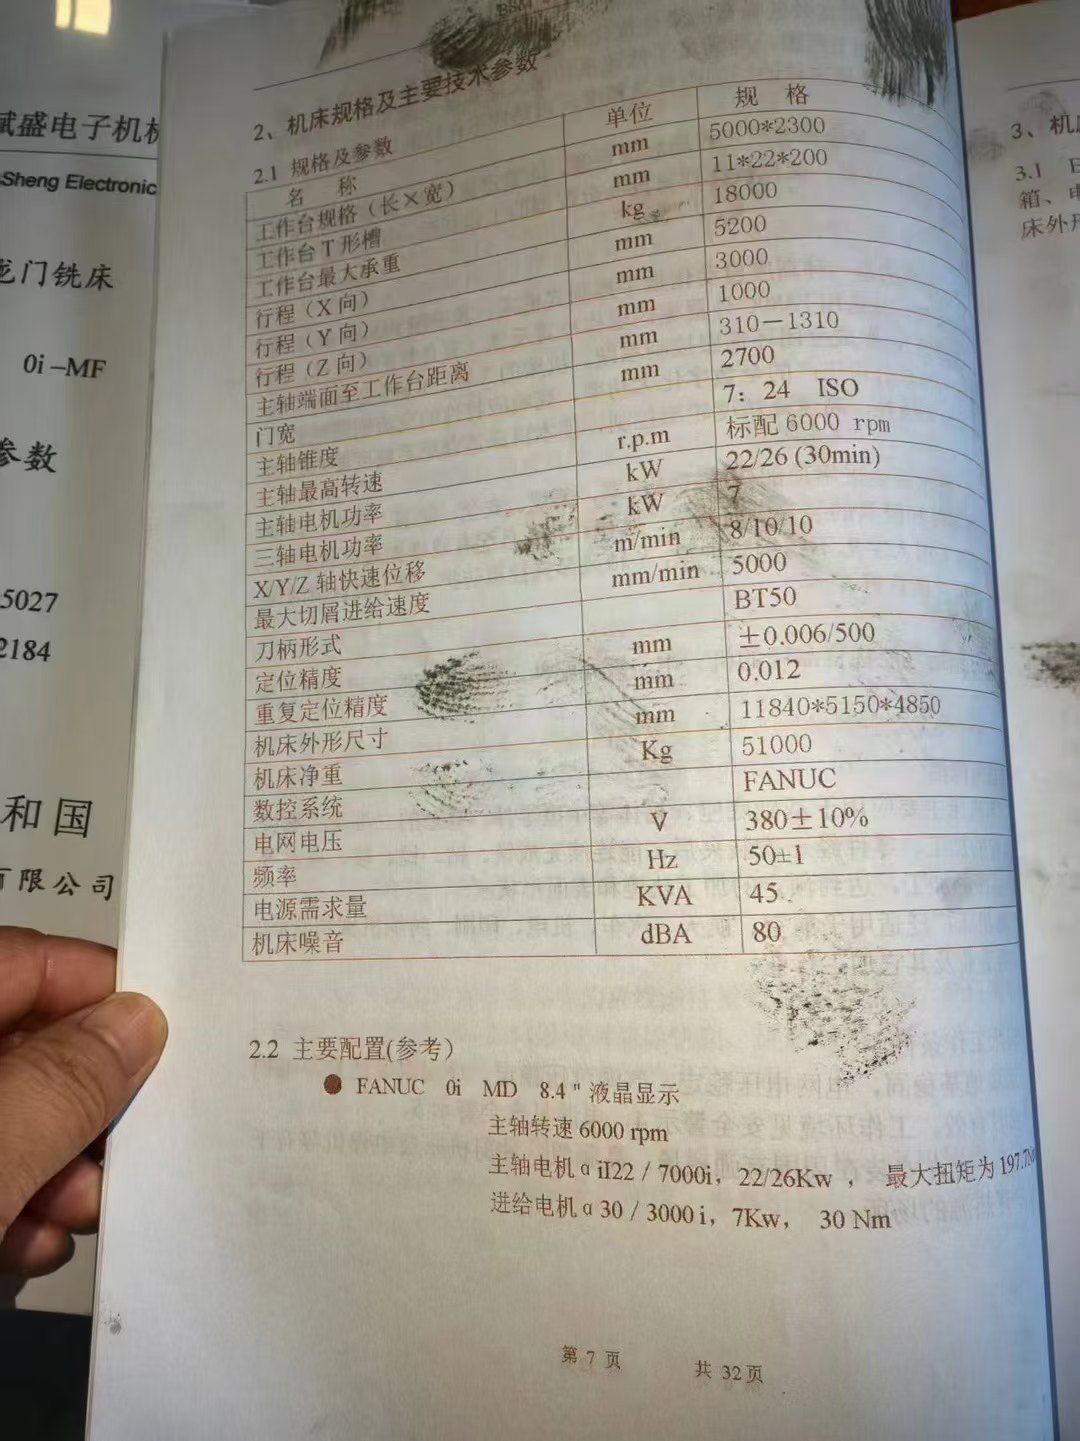 盛电子机
Sheng Electronic
龙门铣床
0i –MF
参数
5027
2184
和国
有限公司
2、机床规格及主要技术参数
2.1 规格及参数
名 称 单位 规 格
工作台规格（长×宽） mm 5000*2300
工作台 T 形槽 mm 11*22*200
工作台最大承重 kg 18000
行程（X 向） mm 5200
行程（Y 向） mm 3000
行程（Z 向） mm 1000
主轴端面至工作台距离 mm 310－1310
门宽 mm 2700
主轴锥度 7：24 ISO
主轴最高转速 r.p.m 标配 6000 rpm
主轴电机功率 kW 22/26 (30min)
三轴电机功率 kW 7
X/Y/Z 轴快速位移 m/min 8/10/10
最大切屑进给速度 mm/min 5000
刀柄形式 BT50
定位精度 mm ±0.006/500
重复定位精度 mm 0.012
机床外形尺寸 mm 11840*5150*4850
机床净重 Kg 51000
数控系统 FANUC
电网电压 V 380±10%
频率 Hz 50±1
电源需求量 KVA 45
机床噪音 dBA 80
2.2 主要配置(参考）
● FANUC 0i MD 8.4＂液晶显示
主轴转速 6000 rpm
主轴电机 α iI22 / 7000i，22/26Kw ， 最大扭矩为 197.7
进给电机 α 30 / 3000 i，7Kw， 30 Nm
第 7 页 共 32 页
3、机
3.1
箱、电
床外形